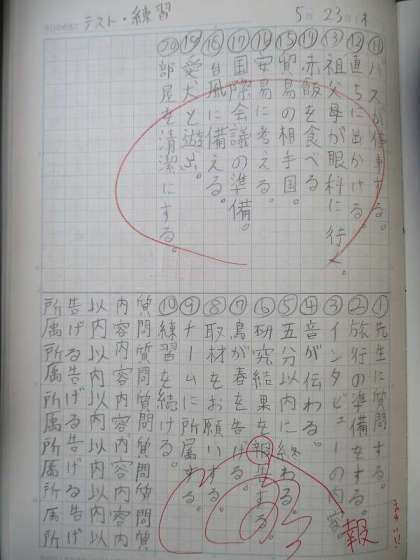 テスト・練習
5 23 木
⑪バスが停車する。
⑫直ちに出かける。
⑬祖父母が眼科に行く。
⑭赤飯を食べる
⑮貿易の相手国。
⑯安易に考える。
⑰国際会議の準備。
⑱台風に備える。
⑲愛犬と遊ぶ。
⑳部屋を清潔にする。
①先生に質問する。
②旅行の準備をする。
③インタビューの内容
④音が伝わる。
⑤五分以内に終わる。
⑥研究結果を報告する。
報
⑦鳥が春を告げる。
⑧取材をお願いする。
⑨チームに所属する。
⑩練習を続ける。
質問質問質問質問質問質
内容内容内容内容内容内
以内以内以内以内以内以
告げる告げる告げる告げ
所属所属所属所属所属所